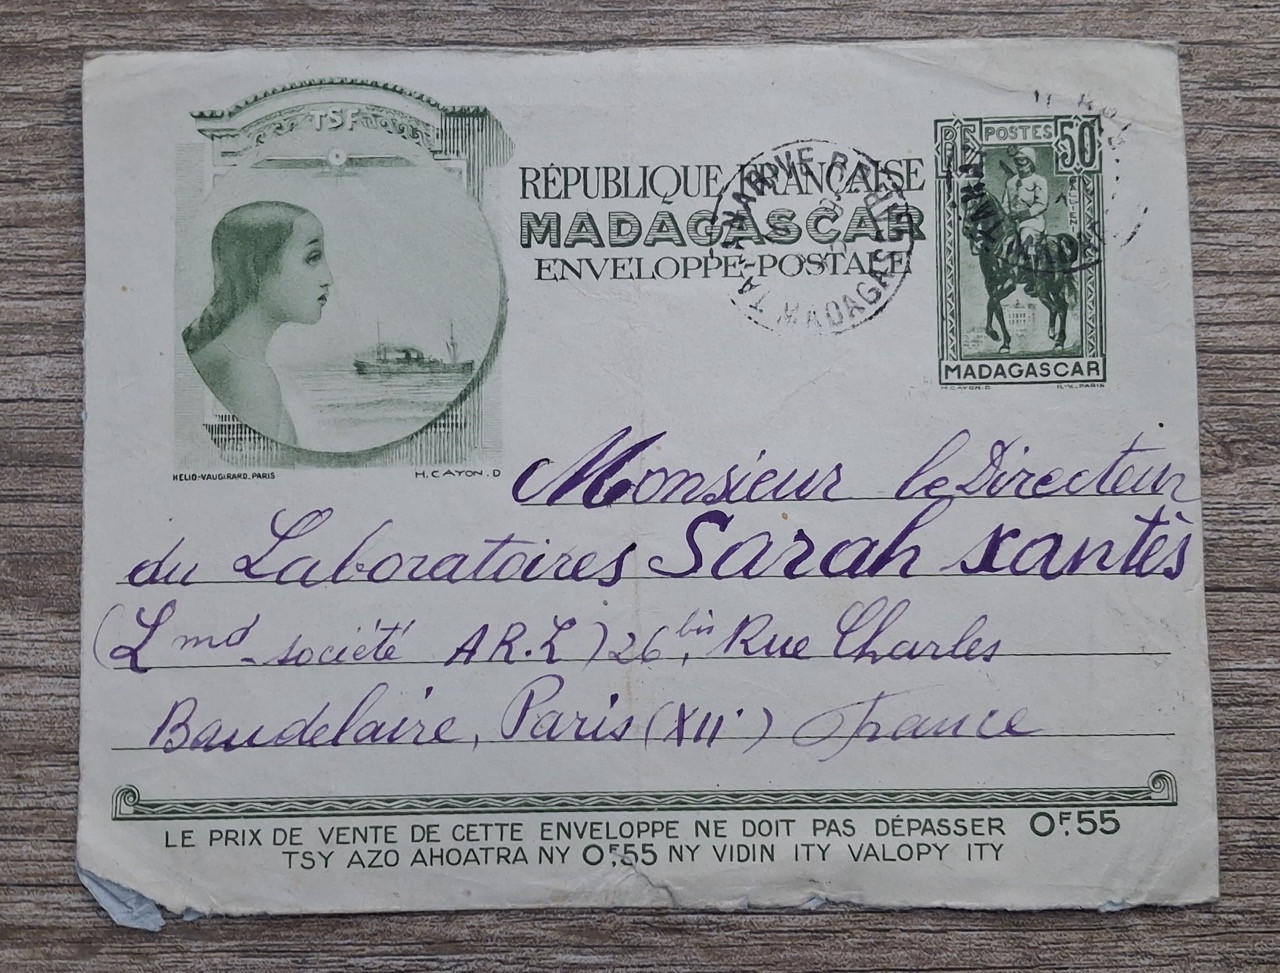 TSF
RÉPUBLIQUE FRANÇAISE
MADAGASCAR
ENVELOPPE-POSTALE
RF POSTES 50c
MADAGASCAR
H. CAYON. D
HELIO-VAUGIRARD. PARIS
H. CAYON. D
MADAGASCAR
Monsieur le Directeur
du Laboratoires Sarah Xantès
(Lmd société A.R.L) 26 bis, Rue Charles
Baudelaire, Paris (XIIe) France
LE PRIX DE VENTE DE CETTE ENVELOPPE NE DOIT PAS DÉPASSER 0F.55
TSY AZO AHOATRA NY 0F.55 NY VIDIN ITY VALOPY ITY